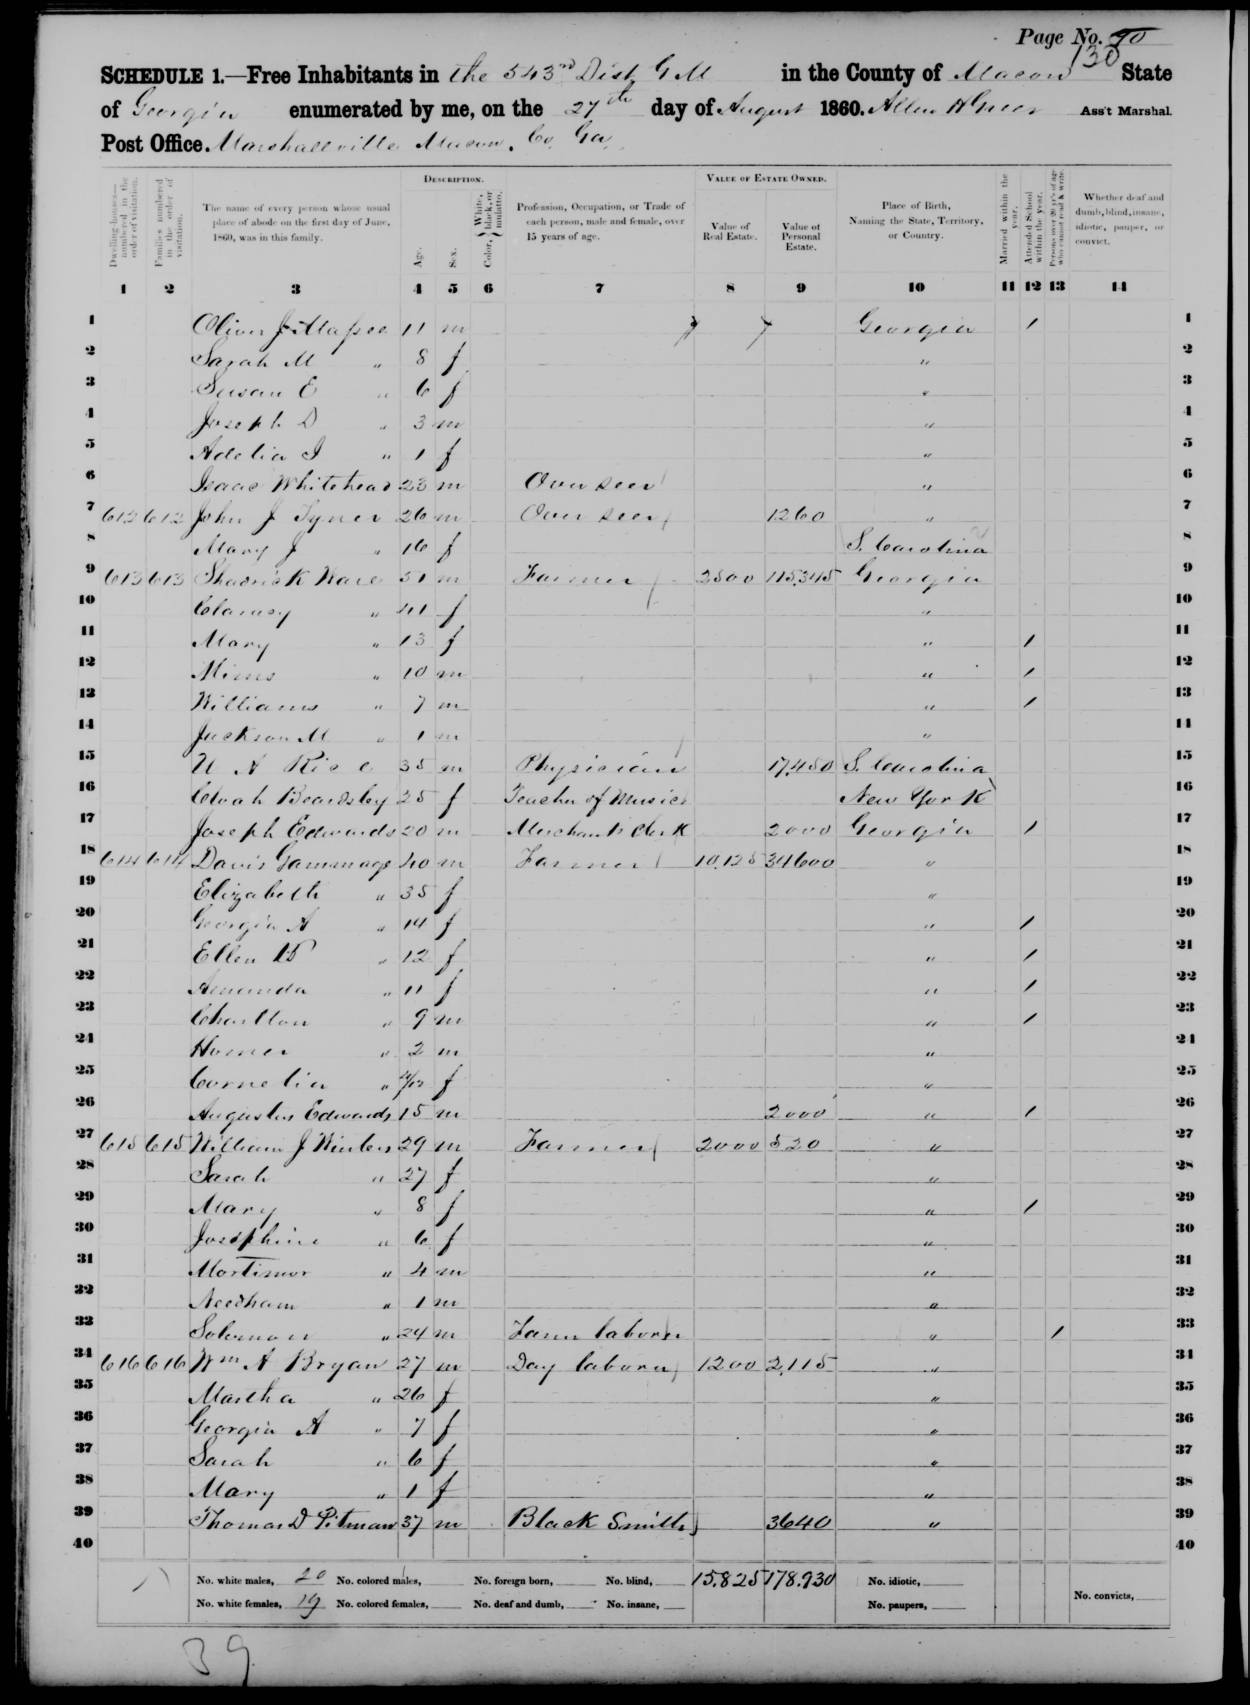 Page No. 90
130
SCHEDULE 1.—Free Inhabitants in the 543rd Dist G M in the County of Macon State
of Georgia enumerated by me, on the 27th day of August 1860. Allen H Greer Ass't Marshal.
Post Office. Marshallville Macon. Co, Ga,
Dwelling-houses—numbered in the order of visitation.
Families numbered in the order of visitation.
The name of every person whose usual place of abode on the first day of June, 1860, was in this family.
DESCRIPTION.
Age.
Sex.
Color, { White, black, or mulatto.
Profession, Occupation, or Trade of each person, male and female, over 15 years of age.
VALUE OF ESTATE OWNED.
Value of Real Estate.
Value of Personal Estate.
Place of Birth, Naming the State, Territory, or Country.
Married within the year.
Attended School within the year.
Persons over 20 yr's of age who cannot read & write.
Whether deaf and dumb, blind, insane, idiotic, pauper, or convict.
1 2 3 4 5 6 7 8 9 10 11 12 13 14
1 Oliver J 11 m Georgia / 1
2 Sarah M " 8 f " 2
3 Susan E " 6 f " 3
4 Joseph D " 3 m " 4
5 Adelia I " 1 f " 5
6 Isaac Whitehead 23 m Overseer " 6
7 612 612 John J Tyner 26 m Overseer 1260 " 7
8 Mary J " 16 f S. Carolina 8
9 613 613 Shadrick Ware 51 m Farmer 2500 115,345 Georgia 9
10 Clamsy " 41 f " 10
11 Mary " 13 f " / 11
12 Mims " 10 m " / 12
13 Williams " 7 m " / 13
14 Jackson M " 1 m " 14
15 U A Rice 35 m Physician 17,450 S. Carolina 15
16 Beardsley 25 f Teacher of Music New York 16
17 Joseph Edwards 20 m Merchants Clerk 2000 Georgia / 17
18 614 614 Davis Gammage 40 m Farmer 10,125 34600 " 18
19 Elizabeth " 35 f " 19
20 Georgia A " 14 f " / 20
21 Ellen " 12 f " / 21
22 Amanda " 11 f " / 22
23 Charlton " 9 m " / 23
24 Homer " 2 m " 24
25 Cornelia " /12 f " 25
26 Augustus Edwards 15 m 2000 " / 26
27 615 615 William J Winters 29 m Farmer 2000 520 " 27
28 Sarah " 27 f " 28
29 Mary " 8 f " / 29
30 Josephine " 6 f " 30
31 Mortimor " 4 m " 31
32 Needham " 1 m " 32
33 Solomon " 24 m Farm laborer " / 33
34 616 616 Wm A Bryan 27 m Day laborer 1200 2,115 " 34
35 Martha " 26 f " 35
36 Georgia A " 7 f " 36
37 Sarah " 6 f " 37
38 Mary " 1 f " 38
39 Thomas D Pitman 37 m Black Smith 3640 " 39
40 40
No. white males, 20 No. colored males, No. foreign born, No. blind, 15.825 178.930 No. idiotic,
No. white females, 19 No. colored females, No. deaf and dumb, No. insane, No. paupers, No. convicts,
39